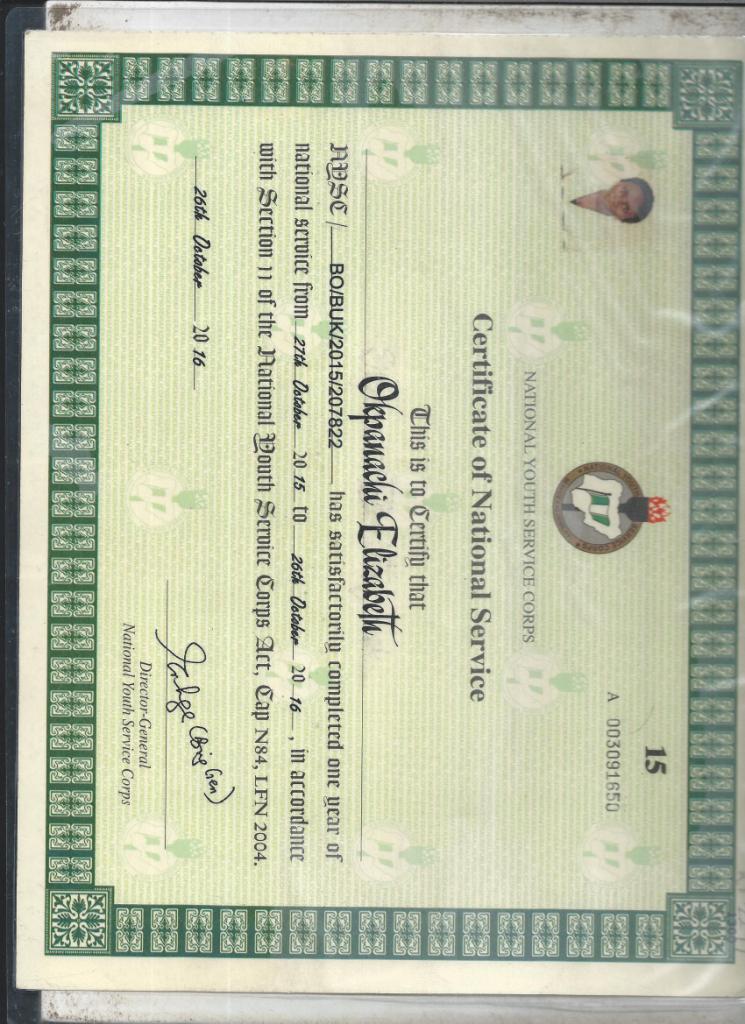 15
A 003091650
NATIONAL YOUTH SERVICE CORPS
Certificate of National Service
This is to Certify that
Okpanachi Elizabeth
NYSC / BO/BUK/2015/207822 has satisfactorily completed one year of
national service from 27th October 20 15 to 26th October 20 16, in accordance
with Section 11 of the National Youth Service Corps Act, Cap N84, LFN 2004.
26th October 20 16
(Brig Gen)
Director-General
National Youth Service Corps